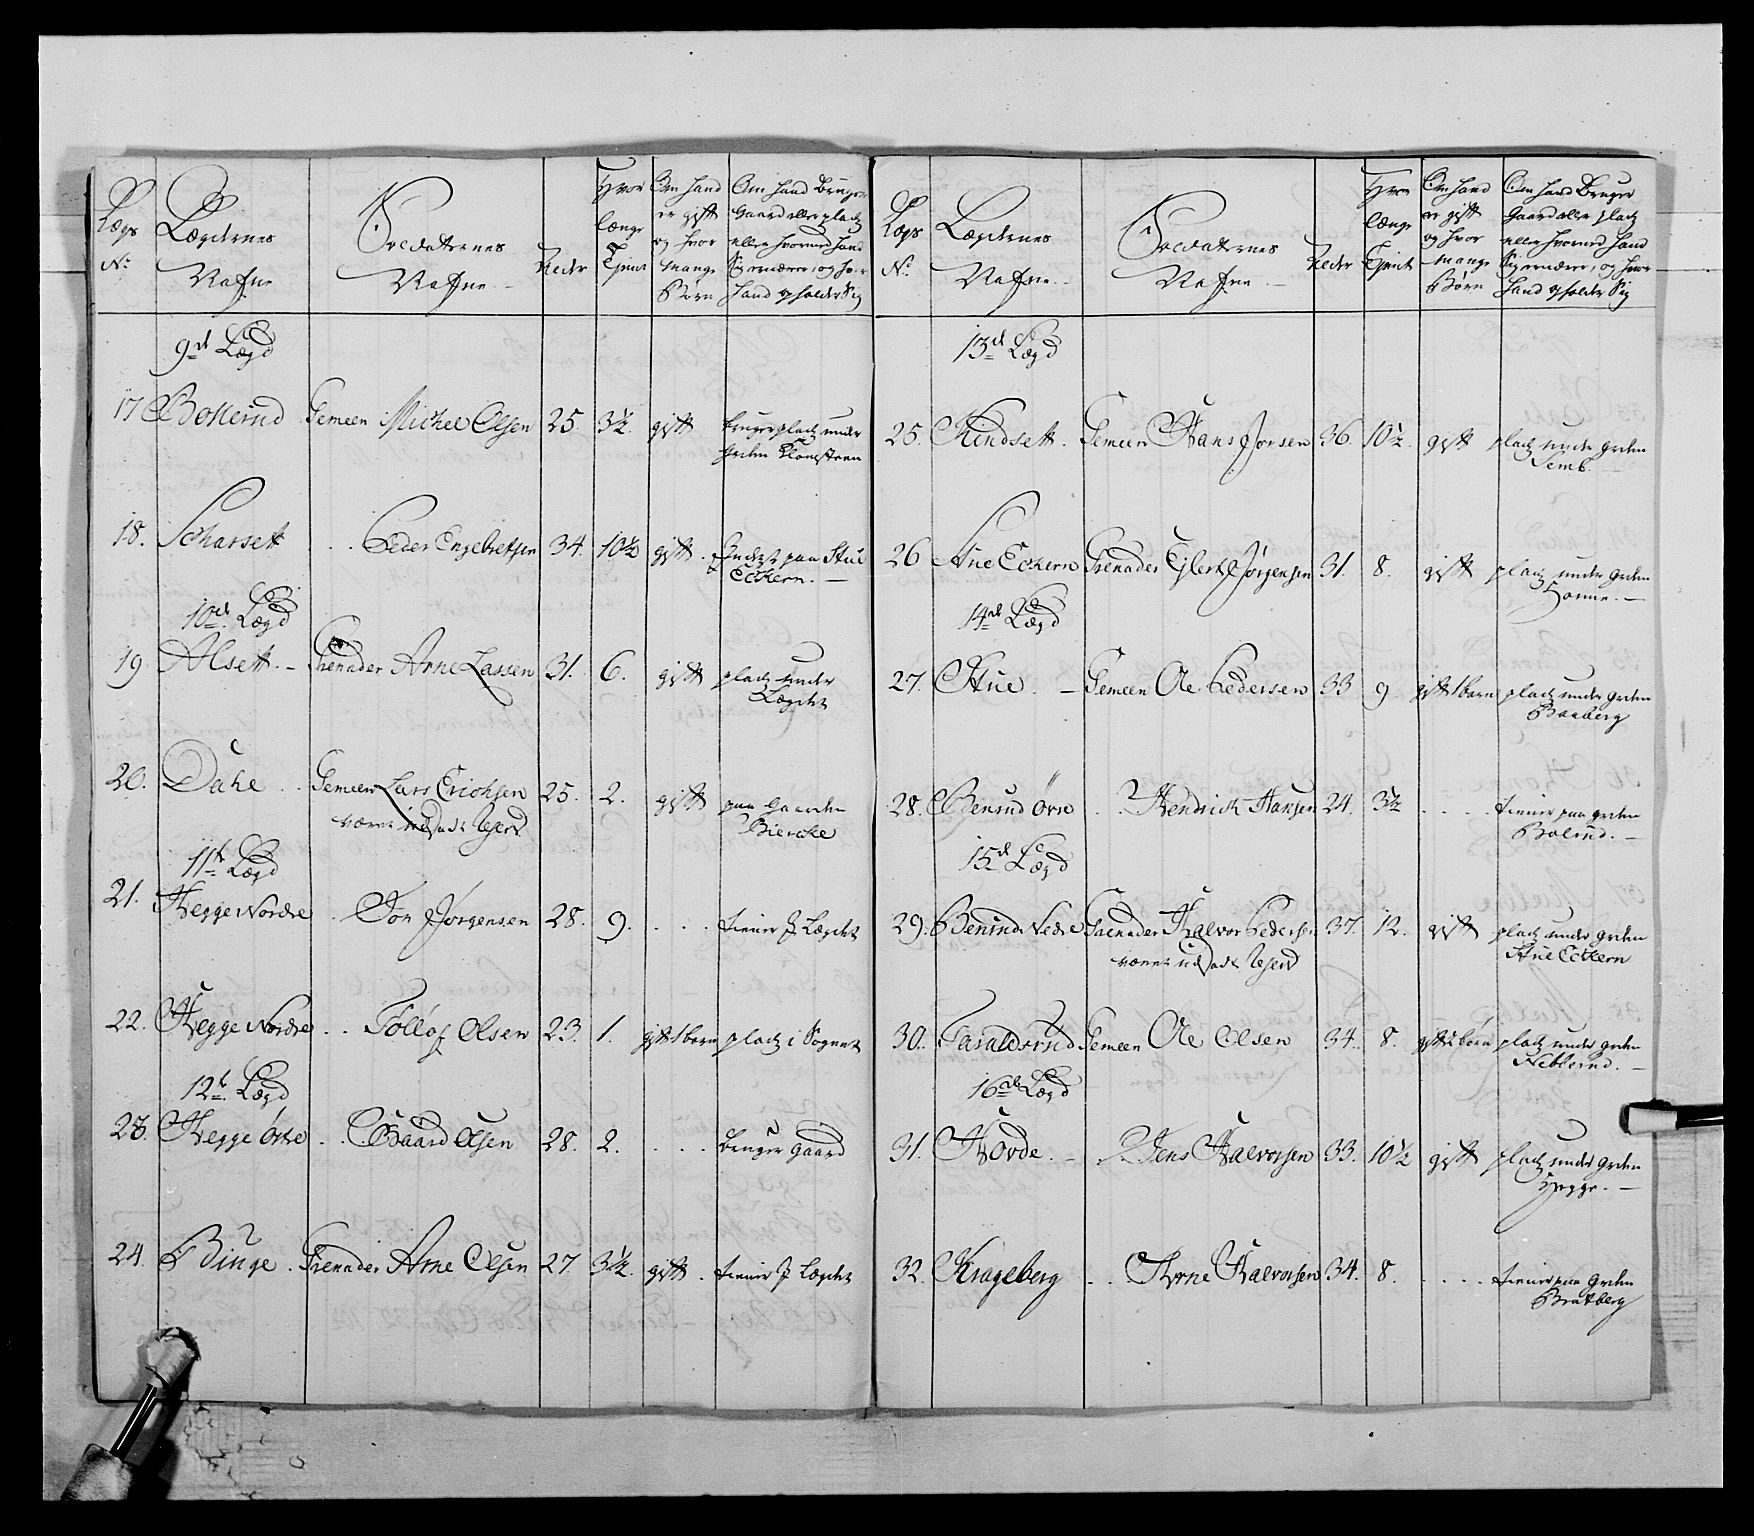 Lægs
No
Lægdernes
Nafne
Soldaternes
Nafne
Alder
Hvor
længe
Tjent
Om hand
er gift
og hvor
mange
Børn
Om hand Bruger
Gaard eller plads
eller hvormed hand
Sig ernærer, og hvor
hand opholder Sig
9de Lægd
17 Bollerud Gemeen Michel Olsen 25. 3½. gift bruger plads under
Grden Klomsteen
18. Scharsett . . Peder Engebretsen 34. 10½ gift . Inderst paa Stue
Eckern. —
10de Lægd
19 Alsett. — Grenader Arne Lassen 31. 6. gift plads under
Lægdet
20. Dahe . . Gemeen Lars Erichsen 25. 2. gift paa Gaarden
været udj Lejerd Biercke
11te Lægd
21. Hegge Nordre . Jon Jørgensen 28. 9. . . . tiener J Lægdet
22. Hegge Nordre . . Tølløf Olsen 23. 1. gift 1 barn plads i Sognet
12te Lægd
23. Hegge Østre . . Baard Olsen 28. 2. . . . bruger Gaard
24. Binge . Grenader Arne Olsen 27. 3½. gift . tiener J Lægdet
Lægs
No
Lægdernes
Nafne.
Soldaternes
Nafne. —
Alder
Hvor
længe
Tjent
Om hand
er gift
og hvor
mange
Børn
Om hand Bruger
Gaard eller plads
eller hvormed hand
Sig ernærer, og hvor
hand opholder Sig
13de Lægd
25. Kindsett . Gemeen Hans Jorsen 36. 10½. gift plads under Grden
Semb. —
26 Stue Eckern Grenader Ejlert Jørgensen 31. 8. gift plads under Grden
Horne. —
14de Lægd
27. Stue . — Gemeen Ole Pedersen 33 9. gift 1 barn plads under Grden
Braaberg
28. Berrud Øvre . . Hendrich Hansen 24. 3½ . . . . tiener paa Grden
Bolerud. —
15de Lægd
29. Berrud Nedre Grenader Halvor Pedersen 37. 12. gift plads under Grden
været udj Lejerd Stue Eckern
30. Taraldsrud Gemeen Ole Olsen 34. 8. gift 2 børn plads under Grden
Nebberud. —
16de Lægd
31. Hovde. — Jens Halvorsen 33. 10½ gift plads under Grden
Hegge. —
32. Krageberg . . Arne Halvorsen 34. 8. . . . . tiener paa Grden
Bratberg